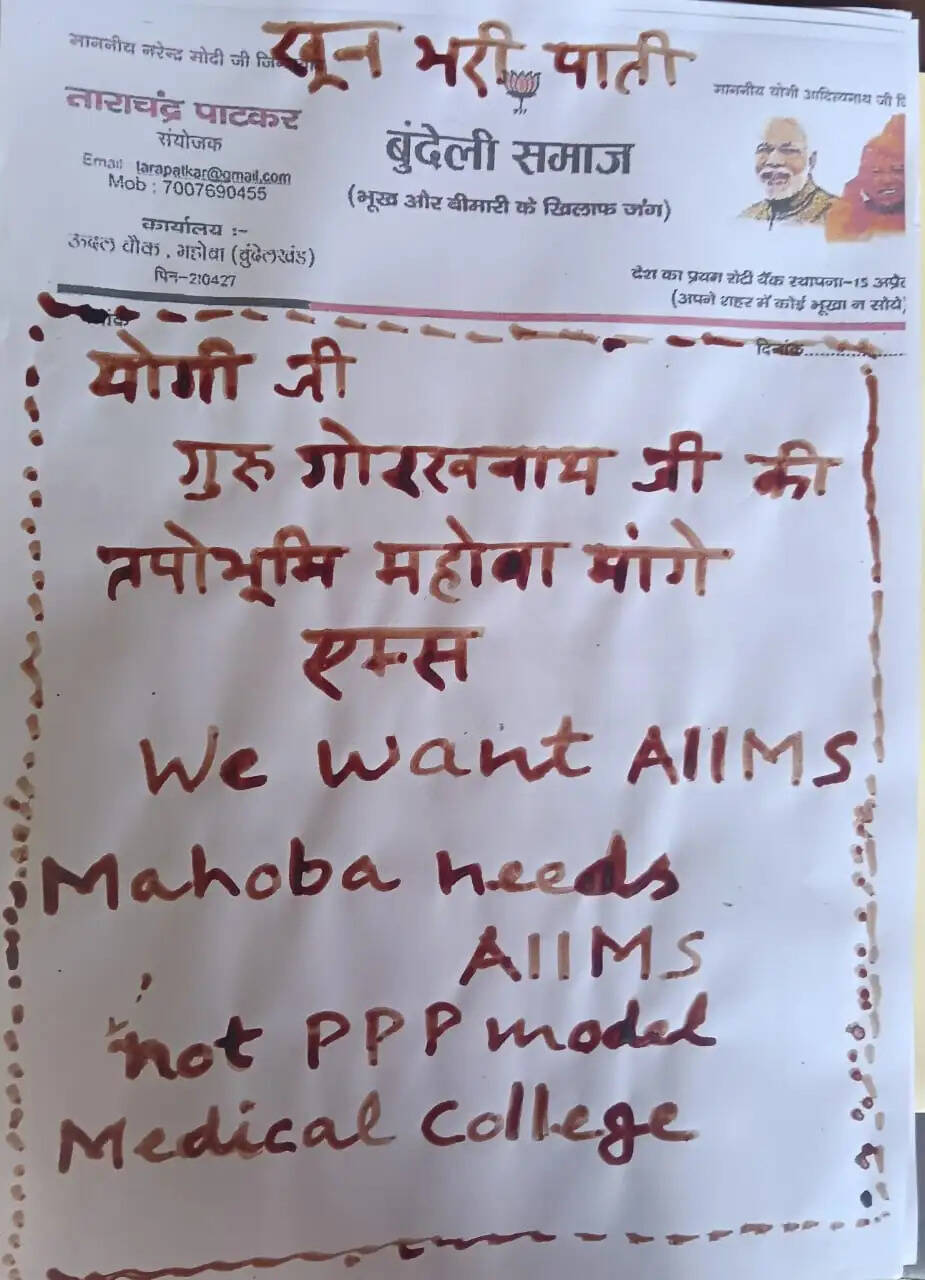 खून भरी पाती
माननीय नरेन्द्र मोदी जी
माननीय योगी आदित्यनाथ जी
ताराचंद्र पाटकर
संयोजक
Email tarapatkar@gmail.com
Mob : 7007690455
कार्यालय :-
ऊदल चौक , महोबा (बुंदेलखंड)
पिन-210427
बुंदेली समाज
(भूख और बीमारी के खिलाफ जंग)
देश का प्रथम रोटी बैंक स्थापना-15 अप्रै
(अपने शहर में कोई भूखा न सोये)
दिनांक....................
योगी जी
गुरु गोरखनाथ जी की
तपोभूमि महोबा मांगे
एम्स
We want AIIMS
Mahoba needs
AIIMS
not PPP model
Medical College